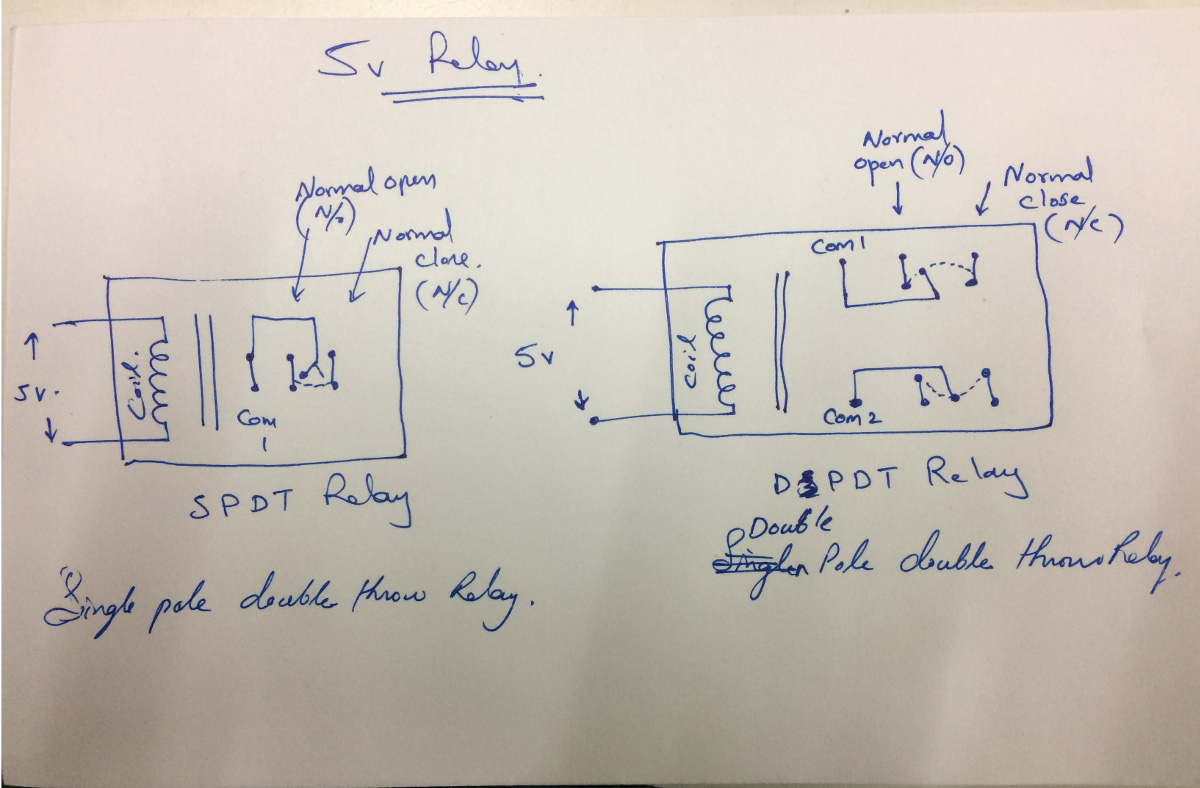 5v Relay.
Normal open
(N/o)
Normal
close.
(N/c)
5v.
Coil.
Com
1
SPDT Relay
Single pole double throw Relay.
Normal
open (N/O)
Normal
close
(N/C)
5v
Coil
Com 1
Com 2
DPDT Relay
Double
Single Pole double throw Relay.